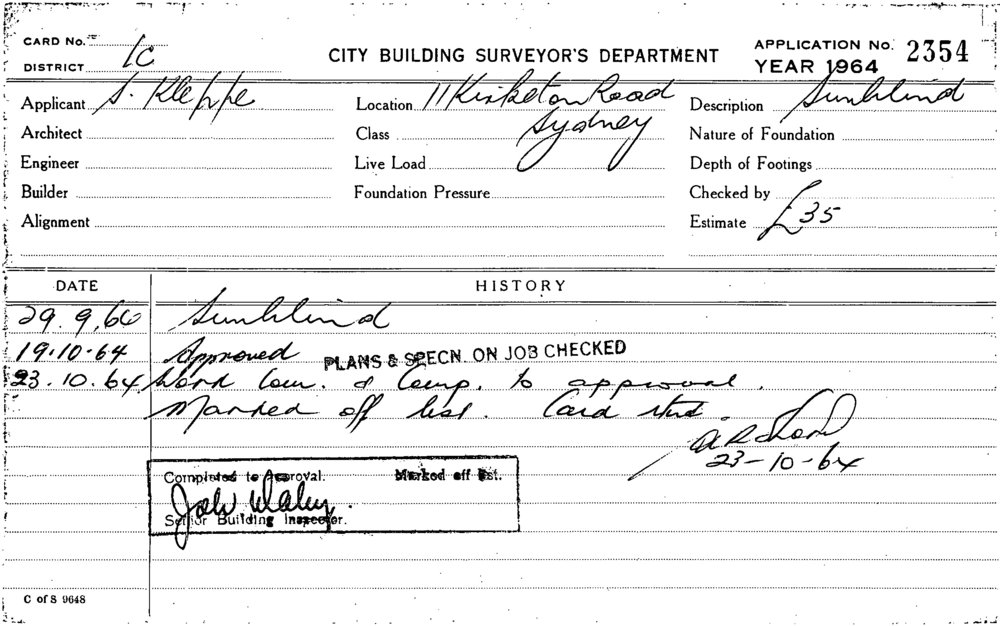 CARD No.
DISTRICT 1c
CITY BUILDING SURVEYOR'S DEPARTMENT
APPLICATION No. 2354
YEAR 1964
Applicant S. Kleppe
Location 11 Kirketon Road
Sydney
Description Sunblind
Architect
Class
Nature of Foundation
Engineer
Live Load
Depth of Footings
Builder
Foundation Pressure
Checked by
Alignment
Estimate £35
DATE
HISTORY
29.9.64 Sunblind
19.10.64 Approved PLANS & SPECN. ON JOB CHECKED
23.10.64 Work Com. & Comp. to approval.
Marked off list. Card
23-10-64
Completed to Approval. Marked off list.
Senior Building Inspector.
C of S 9648